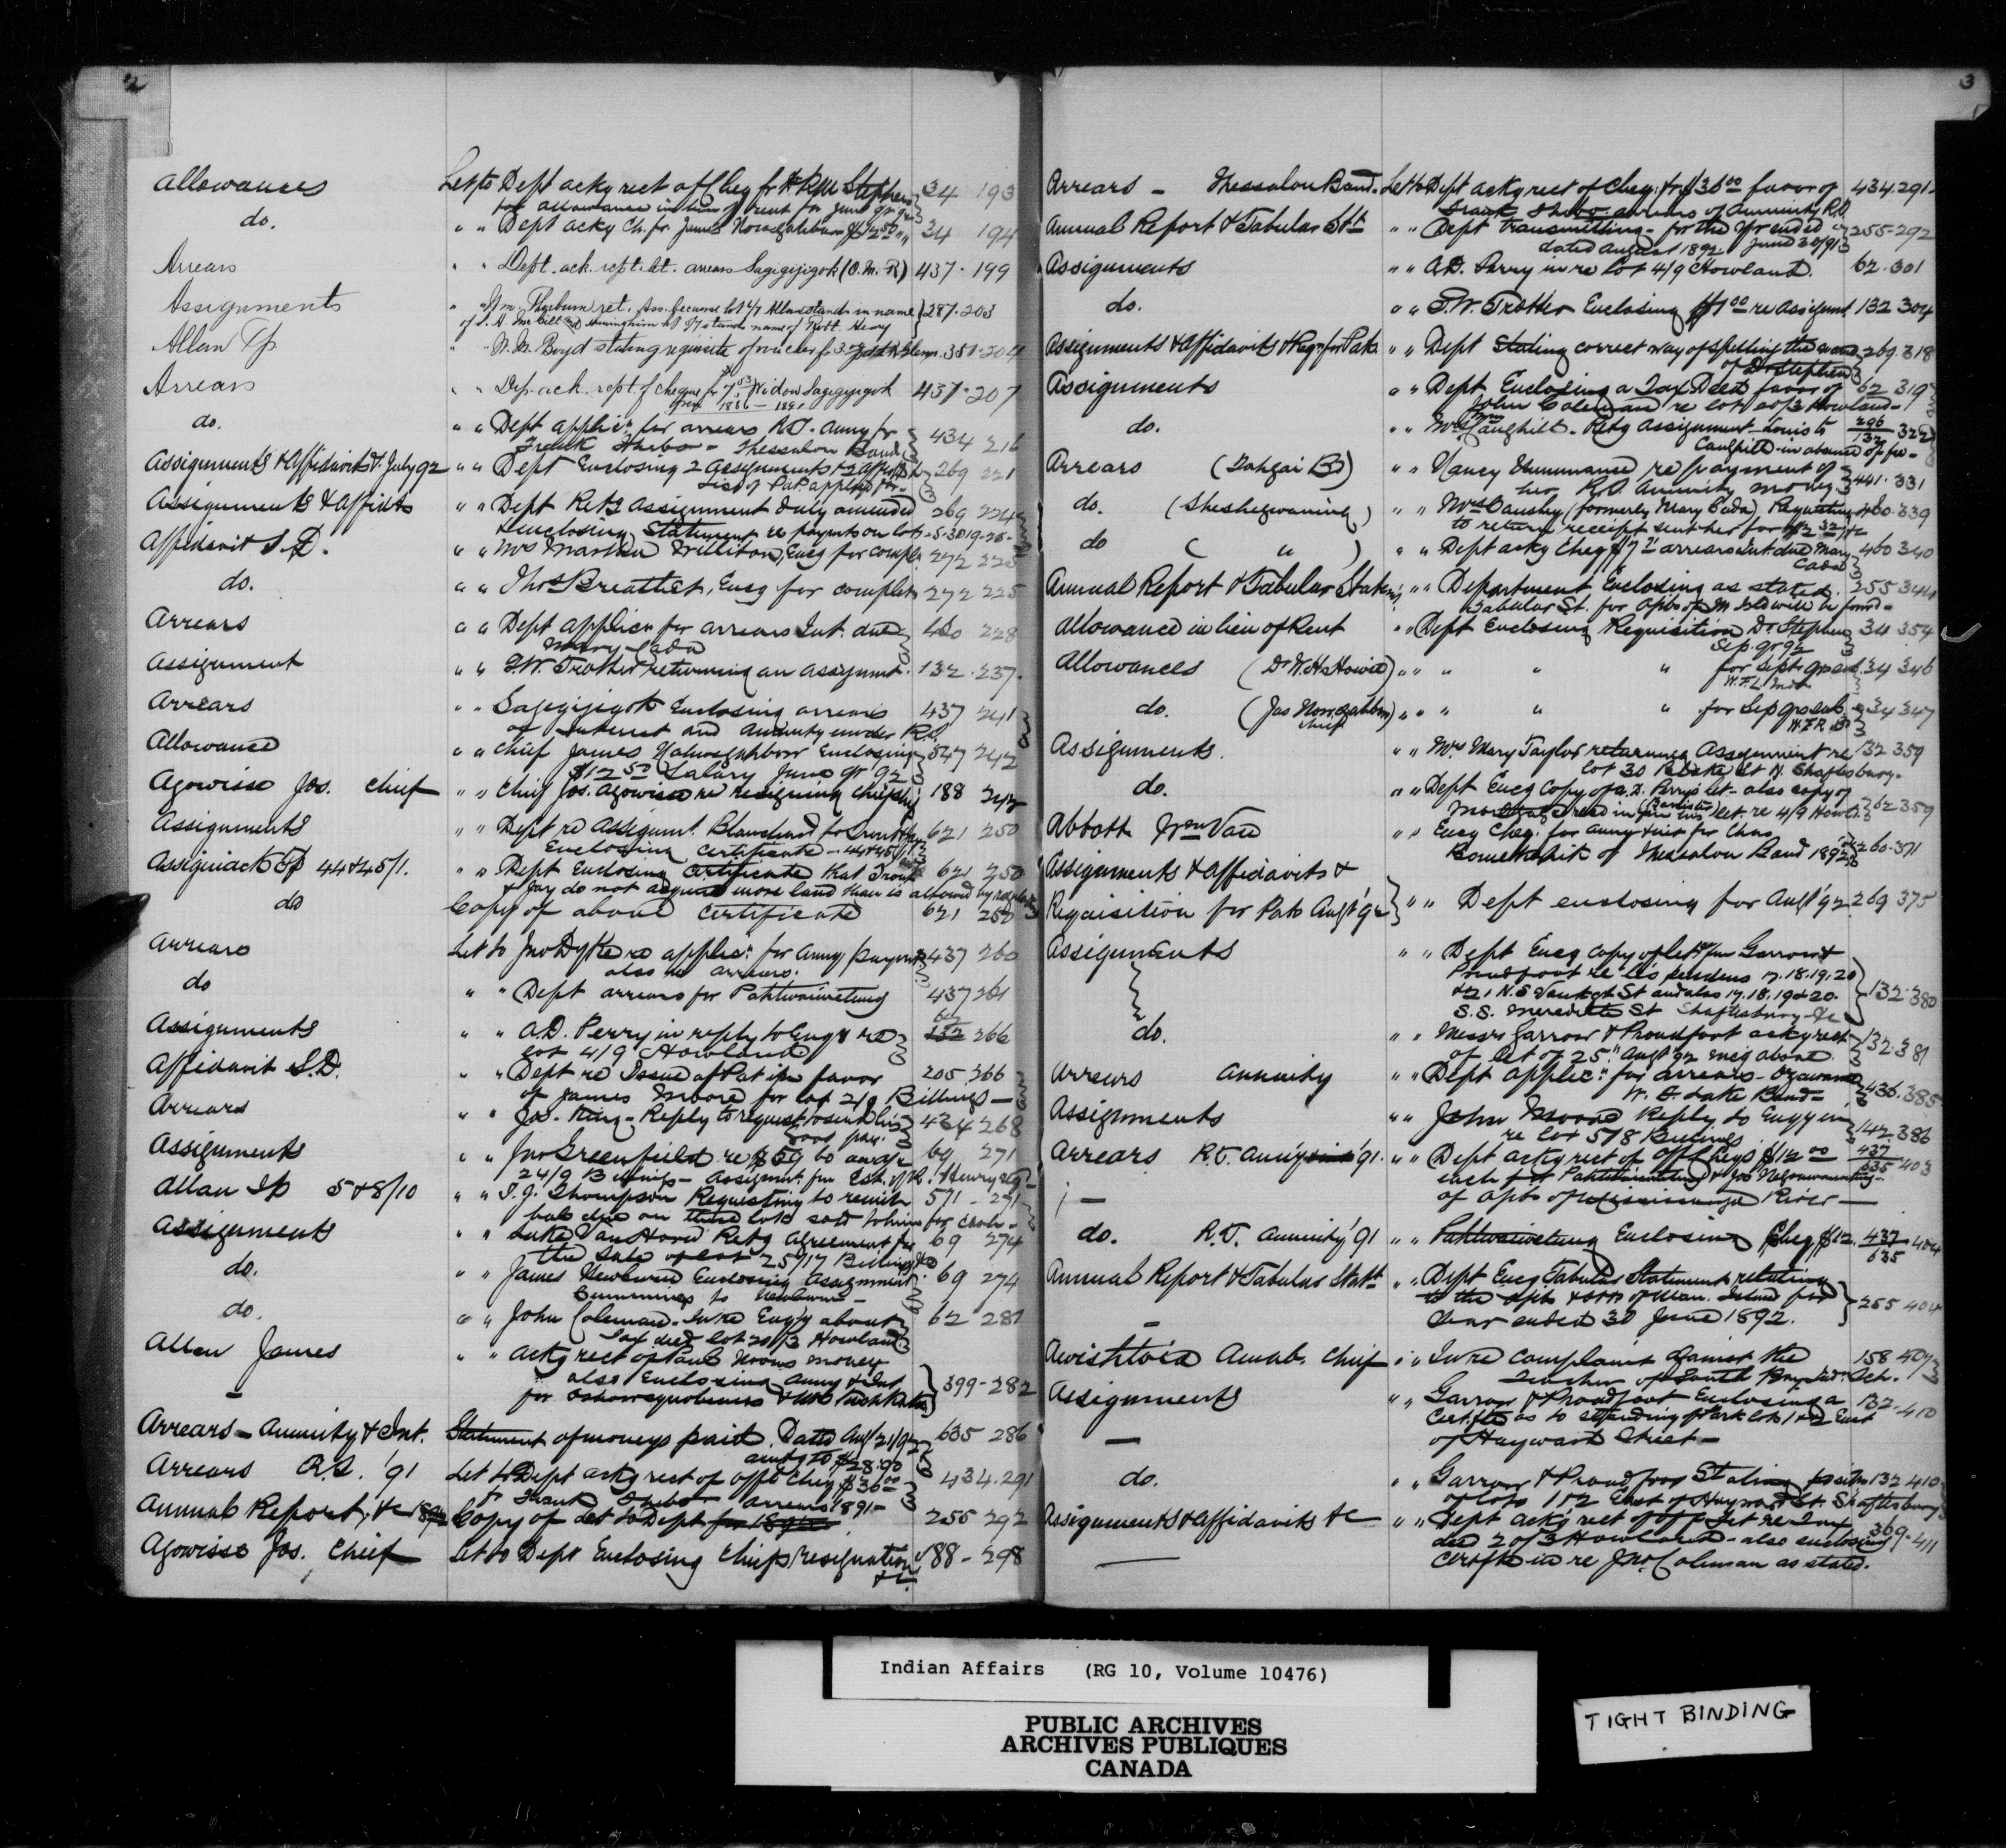 2
Allowances Let to Dept acky rect of Cheq for R.M. Stephen 34 193
for allowance in lieu of rent for June qr
do. " " Dept acky Ch. fr. James $12.50 34 194
Arrears " " Dept. ack. rept. let. arrears Sagigijigok (O.M.R) 437-199
Assignments " Wm. ret. Ass. because lot 4/7 Allan stands in name 287-203
of stands name of Robt. Henry
Allan Tp " W. M. Boyd stating requisite of voucher for 381-204
Arrears " " Dep. ack. rept. of cheque for 7 Widow Sagigijigok 437-207
from 1886 - 1891
do. " " Dept applicn for arrears R.T. Anny for 434 216
Frank Shebo - Thessalon Band
Assignments & Affidavits July 92 " " Dept Enclosing 2 Assignments & 2 269 221
List of Pat. applied for
Assignments & Affidts " " Dept Retg Assignment duly amended 269 224
& enclosing Statement re payments on lots
Affidavit S.D. " " Mrs Martha Williton, Encg for compln 272 225
do. " " Thos Breathet, Encg for compln 272 225
Arrears " " Dept applicn for arrears Int. due 460 228
Mary Cada
Assignment " " T.W. Trotter returning an assignmt. 132-237.
Arrears " " Sagigijigok Enclosing arrears 437 241
of Interest and Annuity under R.T.
Allowance " " Chief James Enclosing 547 242
$12.50 Salary June qr 92
Agowisse Jos. Chief " " Chief Jos. Agowisse re resigning Chiefship 188 242
Assignments " " Dept re Assignmt. Blanchard to 621 250
Enclosing Certificate - 44 & 45/1
Assiginack Tp 44 & 45/1. " " Dept Enclosing Certificate that Trout 621 250
& Jay do not acquire more land than is allowed by
do Copy of above Certificate 621 250
Arrears Let to Jno Dyke re applicn for Anny payment 437 260
also re arrears.
do " " Dept arrears for Pahtwaiwetung 437 261
Assignments " " A.D. Perry in reply to Enqy re 62 132 266
lot 4/9 Howland
Affidavit S.D. " " Dept re Issue of Pat in favor 205 266
of James Moore for lot 2/9 Billings -
Arrears " " Jas. King - Reply to request to send his 434 268
pay.
Assignments " " Jno Greenfield re $59 bal on 69 271
24/9 Billings - Assignmt. fm Est. of R. Henry
Allan Tp 5 & 8/10 " " T.J. Thompson Requesting to remit 571-271
bal due on these lots sold to him for cash -
Assignments " " Luke Van Horn Retg Agreement for 69 274
the sale of lot 25/17 Billings
do. " " James Newburn Enclosing Assignment 69 274
Cummings to Newburn -
do. " " John Coleman. In re Enqy about 62 281
Tax deed lot 20/3 Howland
Allen James " " Acky rect of Paul money
also Enclosing Anny & Int 399-282
for
Arrears - Annuity & Int. Statement of moneys paid. Dated Augt 21/92 635 286
amtg to $28.90
Arrears R.T. '91 Let to Dept acky rect of offl Cheq $36.00 434.291
fr Frank Shebo arrears 1891 -
Annual Report, &c 1892 Copy of Let to Dept for 1892 255 292
Agowisse Jos. Chief Let to Dept Enclosing Chiefs resignation 188-298
&c.
3
Arrears - Thessalon Band. Let to Dept acky rect of Cheq. for $36.00 favor of 434.291-
Frank Shebo arrears of Annuity R.T.
Annual Report & Tabular Stt " " Dept transmitting - for the yr ended 255-292
dated August 1892. June 30/91
Assignments " " A.D. Perry in re lot 4/9 Howland. 62.301
do. " " T.W. Trotter Enclosing $1.00 re Assignmt 132 304
Assignments & Affidavits & Reqn for Pats " " Dept Stating correct way of spelling the name 269.318
of Dr Stephen
Assignments " " Dept Enclosing a Tax Deed favor of 62 319
John Coleman re lot 20/3 Howland -
do. " " Wm Caughill - Retg Assignment Louis to 296 132 322
Caughill - in absence of fee -
Arrears (Tahgai Bd) " " Nancy re payment of 441.331
her R.T. Annuity money.
do. (Sheshegwaning) " " Mrs (formerly Mary Cada) Requesting 460.339
to return receipt sent her for
do ( " ) " " Dept acky Cheq $7 arrears Int. due Mary 460 340
Cada
Annual Report & Tabular Statemt " " Department Enclosing as stated. 255 344
Tabular St. for
Allowance in lieu of Rent " " Dept Enclosing Requisition Dr Stephen 34 354
Sep. qr 92
Allowances (Dr W.H. Howitt) " " " " " for Sept. qr 34 346
do. (Jas Chief) " " " " " for Sep qr 34 347
Assignments. " " Mrs Mary Taylor returning Assignment re 132 359
lot 30 Blake St N. Shaftesbury.
do. " " Dept Encg Copy of A.D. Perry's let - also copy of
(Barristers) let. re 4/9 Howld. 62 359
Abbott Wm Van " " Encg Cheq. for Anny & int for Chas
of Thessalon Band 1892 260-371
Assignments & Affidavits &
Requisition for Pats Augt '92 " " Dept enclosing for Augt '92. 269 375
Assignments " " Dept Encg copy of let fm Garrow &
Proudfoot re lis pendens 17.18.19.20
& 21 N.S Vankat St and also 17.18.19 & 20. 132.380
S.S. Meredith St Shaftesbury &c
do. " " Messrs Garrow & Proudfoot acky rect 132.381
of let of 25" Augt 92 above.
Arrears Annuity " " Dept applicn for arrears -
W. F. Lake Band - 436.385
Assignments " " John Moore Reply to Enqy in
re lot 5/8 Billings 142.386
Arrears R.T. Anny '91. " " Dept acky rect of offl Cheqs $12.00 437 635 403
each for Pahtwaiwetung & Jos
of Opbs of Mississauga River -
do. R.T. Annuity '91 " " Pahtwaiwetung Enclosing Cheq $12. 437 635 404
Annual Report & Tabular Statt " " Dept Encg Tabular Statement relating
to the Opbs & of Man. Island for 255 404
year ended 30 June 1892.
Awishtoia Amab. Chief " " In re complaint against the 158 407
Teacher of South Bay Ind: Sch.
Assignments " " Garrow & Proudfoot Enclosing a 132.410
Certifte as to standing of Park lots 1 & 2 East
of Hayward Street -
do. " " Garrow & Proudfoot Stating 132 410
of lots 1 & 2 East of Hayward St. Shaftesbury
Assignments & Affidavits &c " " Dept acky rect of offl Let re Tax
deed 20/3 Howland - also enclosing 369-411
Certft in re Jno Coleman as stated.
Indian Affairs (RG 10, Volume 10476)
PUBLIC ARCHIVES
ARCHIVES PUBLIQUES
CANADA
TIGHT BINDING